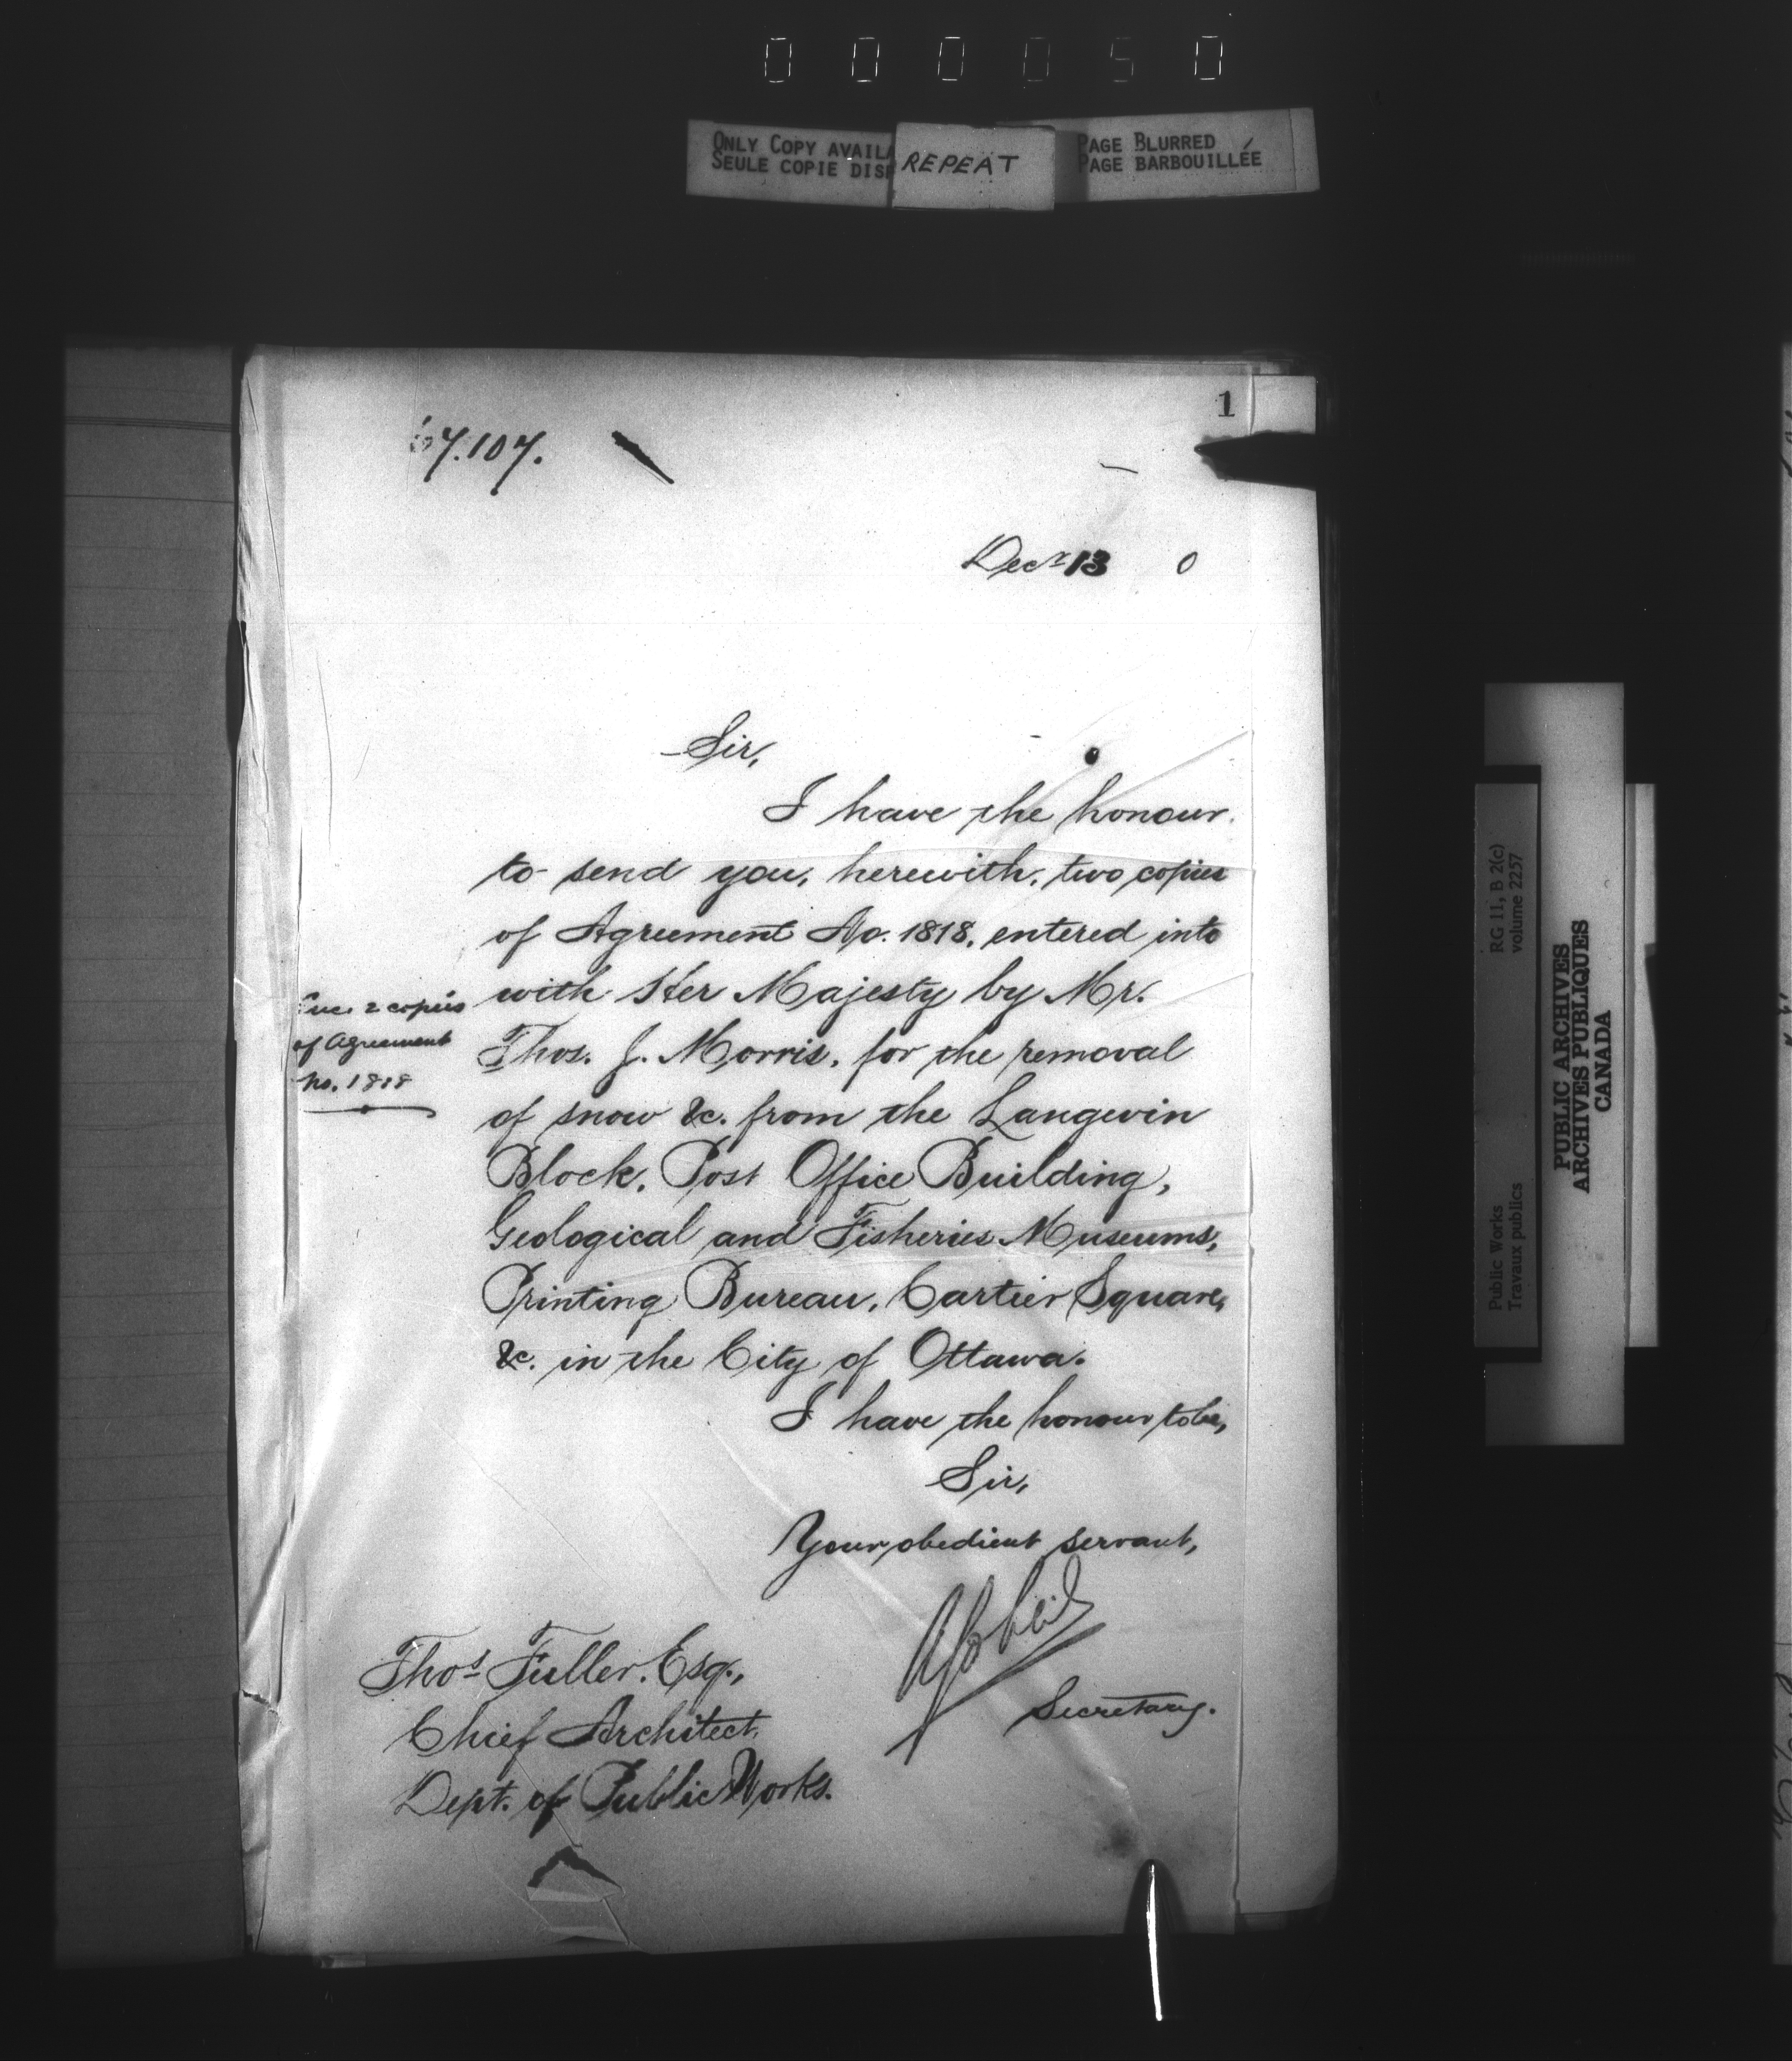 000050
ONLY COPY AVAILA
SEULE COPIE DIS
REPEAT
PAGE BLURRED
PAGE BARBOUILLÉE
1
67.107.
Decr 13 0
Sir,
I have the honour
to send you, herewith, two copies
of Agreement No. 1818, entered into
with Her Majesty by Mr.
Thos. J. Morris, for the removal
of snow &c. from the Langevin
Block, Post Office Building,
Geological and Fisheries Museums,
Printing Bureau, Cartier Square,
&c. in the City of Ottawa.
Enc. 2 copies
of Agreement
No. 1818
I have the honour to be,
Sir,
Your obedient servant,
Secretary.
Thos Fuller, Esq.,
Chief Architect,
Dept. of Public Works.
RG 11, B 2(c)
volume 2257
Public Works
Travaux publics
PUBLIC ARCHIVES
ARCHIVES PUBLIQUES
CANADA